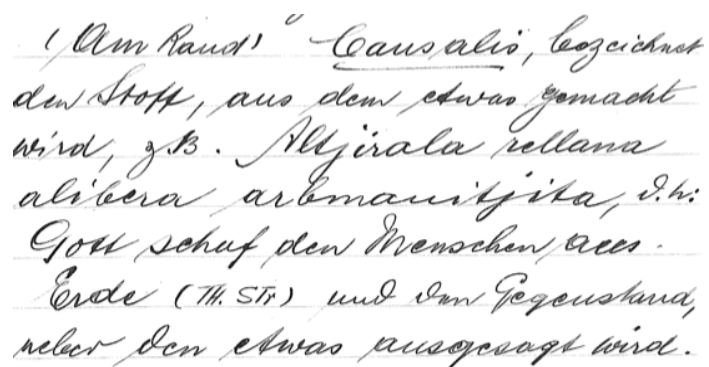 (Am Rand) Causalis, bezeichnet
den Stoff, aus dem etwas gemacht
wird, z.B. Altjirala rellana
alibera arbmanitjita, d.h:
Gott schuf den Menschen aus
Erde (TH. STr) und den Gegenstand,
ueber den etwas ausgesagt wird.